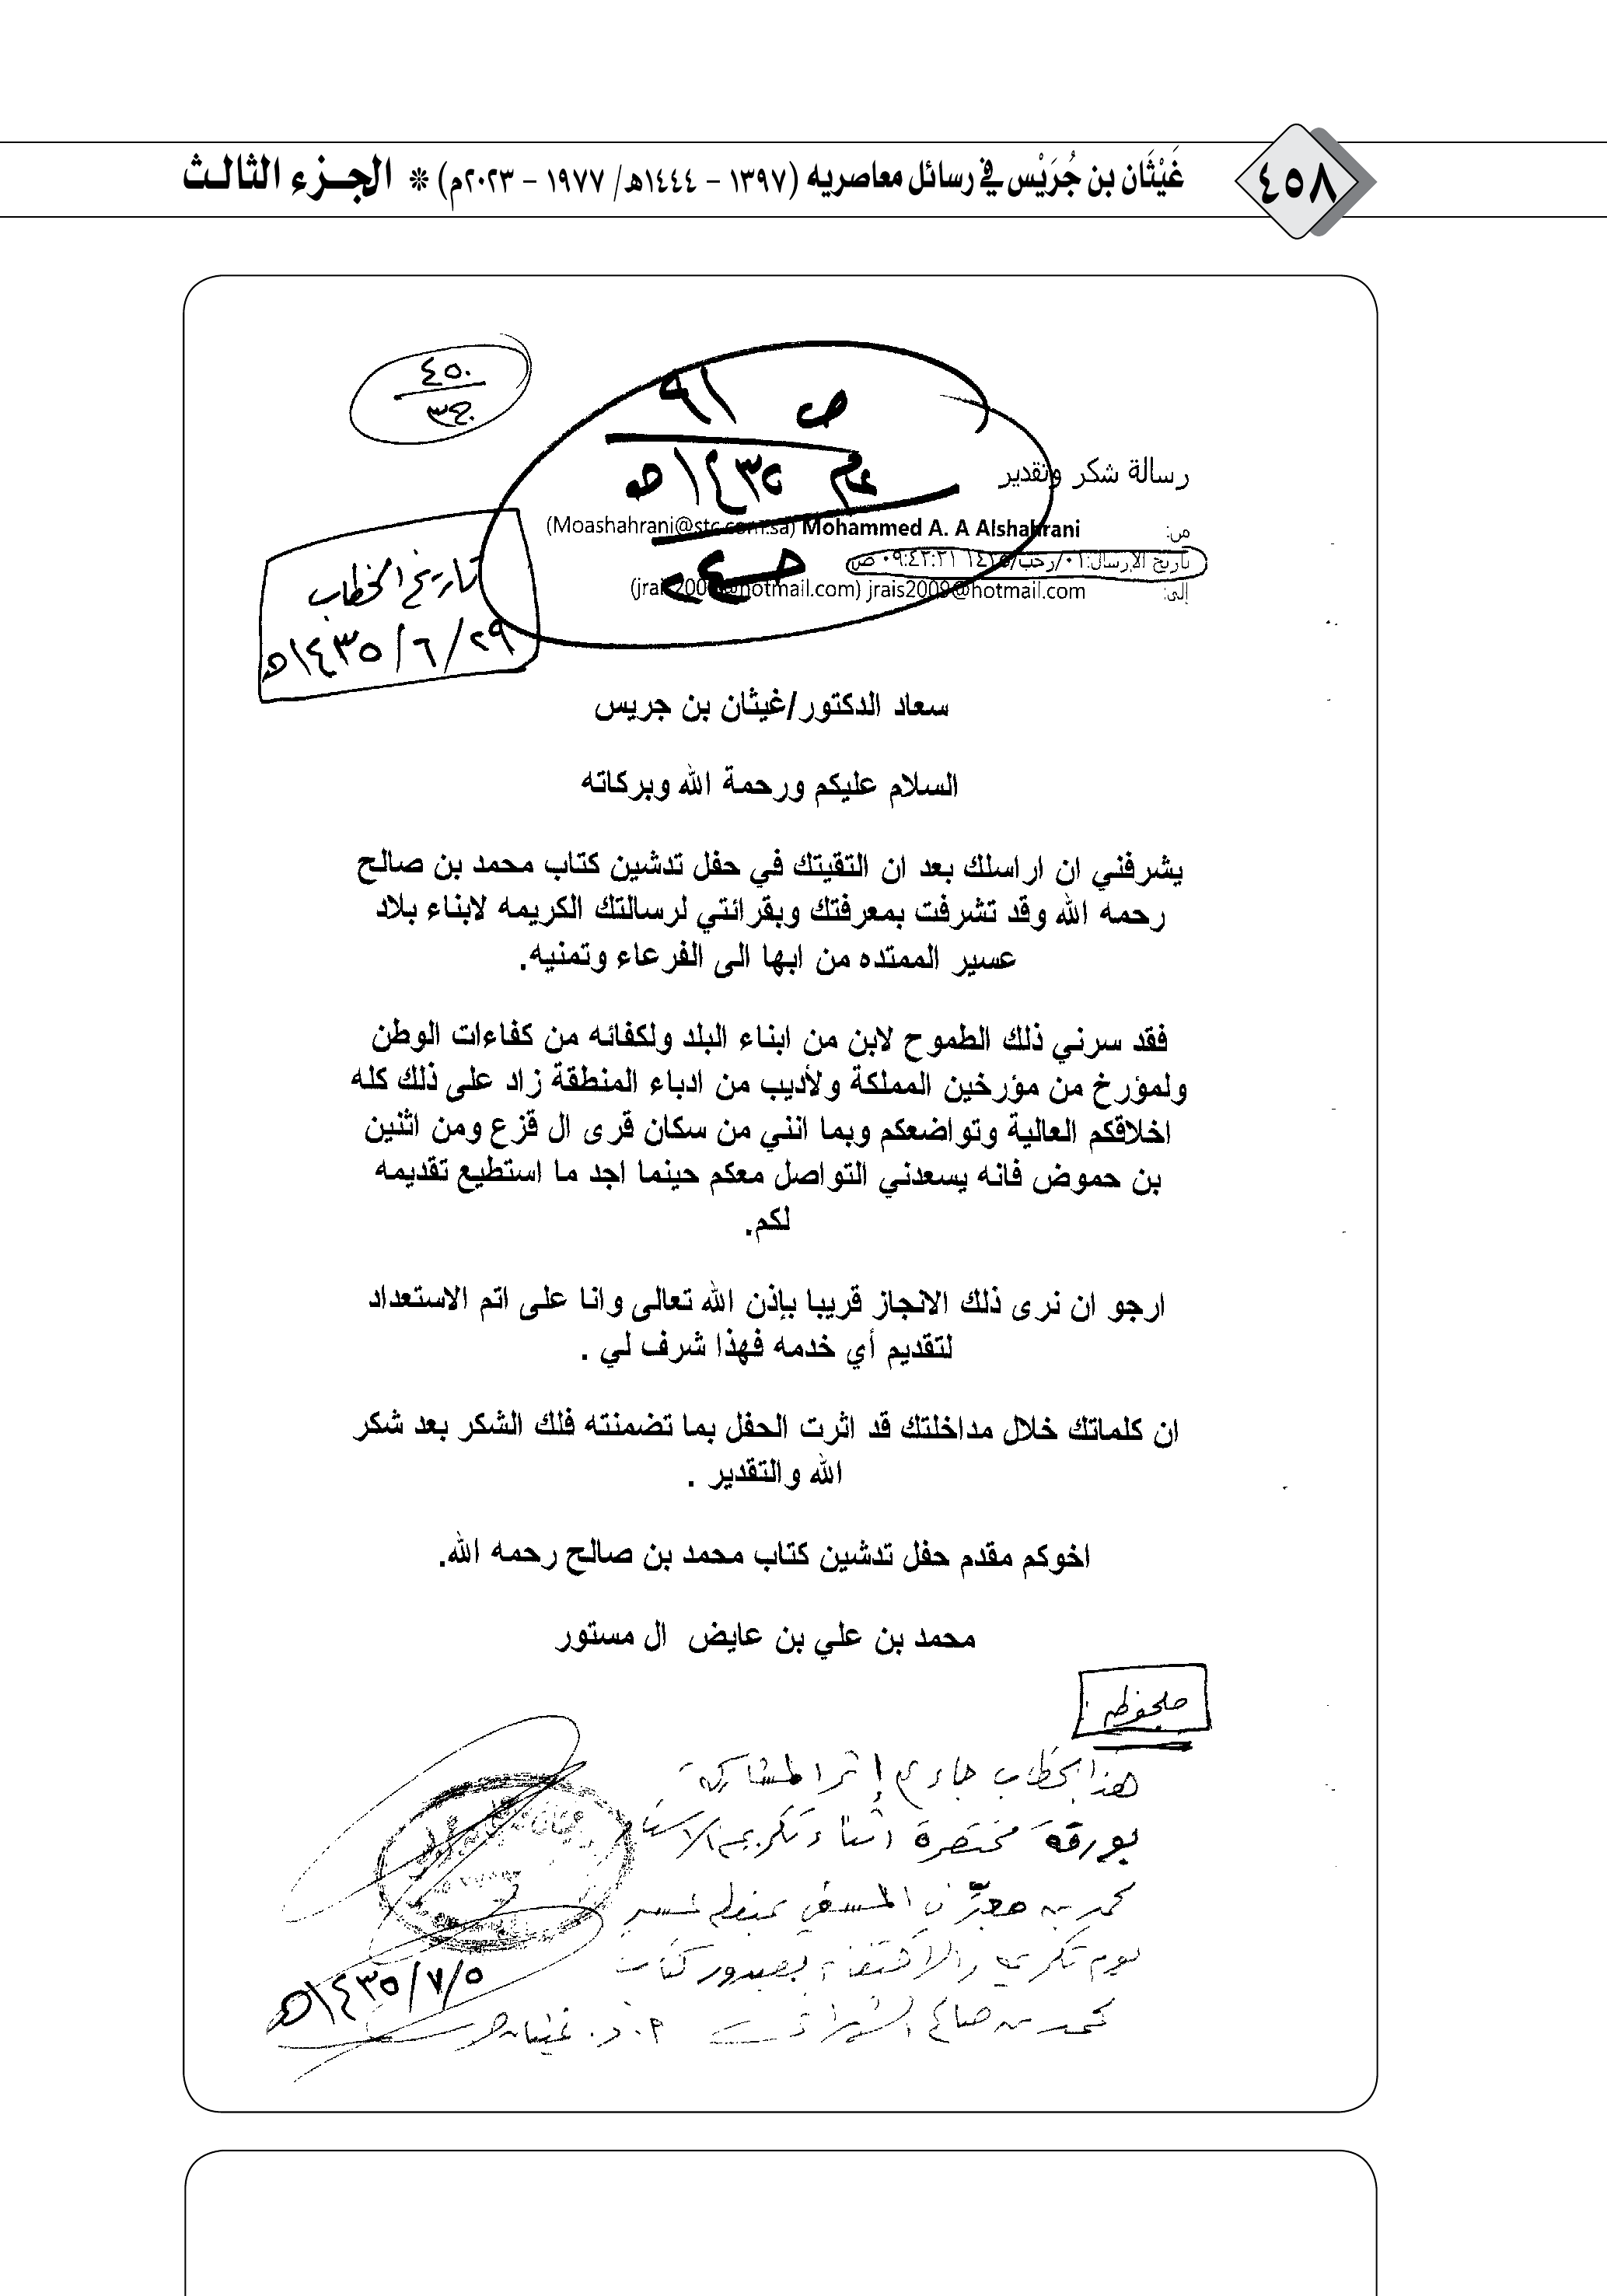 ٤٥٨
غَيْثَان بن جُرَيْس في رسائل معاصريه (١٣٩٧ – ١٤٤٤هـ/ ١٩٧٧ – ٢٠٢٣م) * الجـزء الثالـث
٤٥٠
ج٣
ص ٩١
عام ١٤٣٥هـ
رسالة شكر وتقدير
من: Mohammed A. A Alshahrani (Moashahrani@stc.com.sa)
تاريخ الإرسال: ٠١/رجب/١٤٣٥ ٠٩:٤٢:٢١ ص
إلى: jrais2009@hotmail.com (jrais2009@hotmail.com)
تاريخ الخطاب
٢٩/٦/١٤٣٥هـ
سعاد الدكتور/غيثان بن جريس
السلام عليكم ورحمة الله وبركاته
يشرفني ان اراسلك بعد ان التقيتك في حفل تدشين كتاب محمد بن صالح
رحمه الله وقد تشرفت بمعرفتك وبقرائتي لرسالتك الكريمه لابناء بلاد
عسير الممتده من ابها الى الفرعاء وتمنيه.
فقد سرني ذلك الطموح لابن من ابناء البلد ولكفائه من كفاءات الوطن
ولمؤرخ من مؤرخين المملكة ولأديب من ادباء المنطقة زاد على ذلك كله
اخلاقكم العالية وتواضعكم وبما انني من سكان قرى ال قزع ومن اثنين
بن حموض فانه يسعدني التواصل معكم حينما اجد ما استطيع تقديمه
لكم.
ارجو ان نرى ذلك الانجاز قريبا بإذن الله تعالى وانا على اتم الاستعداد
لتقديم أي خدمه فهذا شرف لي .
ان كلماتك خلال مداخلتك قد اثرت الحفل بما تضمنته فلك الشكر بعد شكر
الله والتقدير .
اخوكم مقدم حفل تدشين كتاب محمد بن صالح رحمه الله.
محمد بن علي بن عايض ال مستور
ملحوظة :
هذا الخطاب جاءني إثر المشاركة
بورقة مختصرة أثناء تكريم الأستاذ
محمد بن
يوم بصدور كتاب
محمد بن صالح الشهراني أ. د. غيثان جريس
٥/٧/١٤٣٥هـ